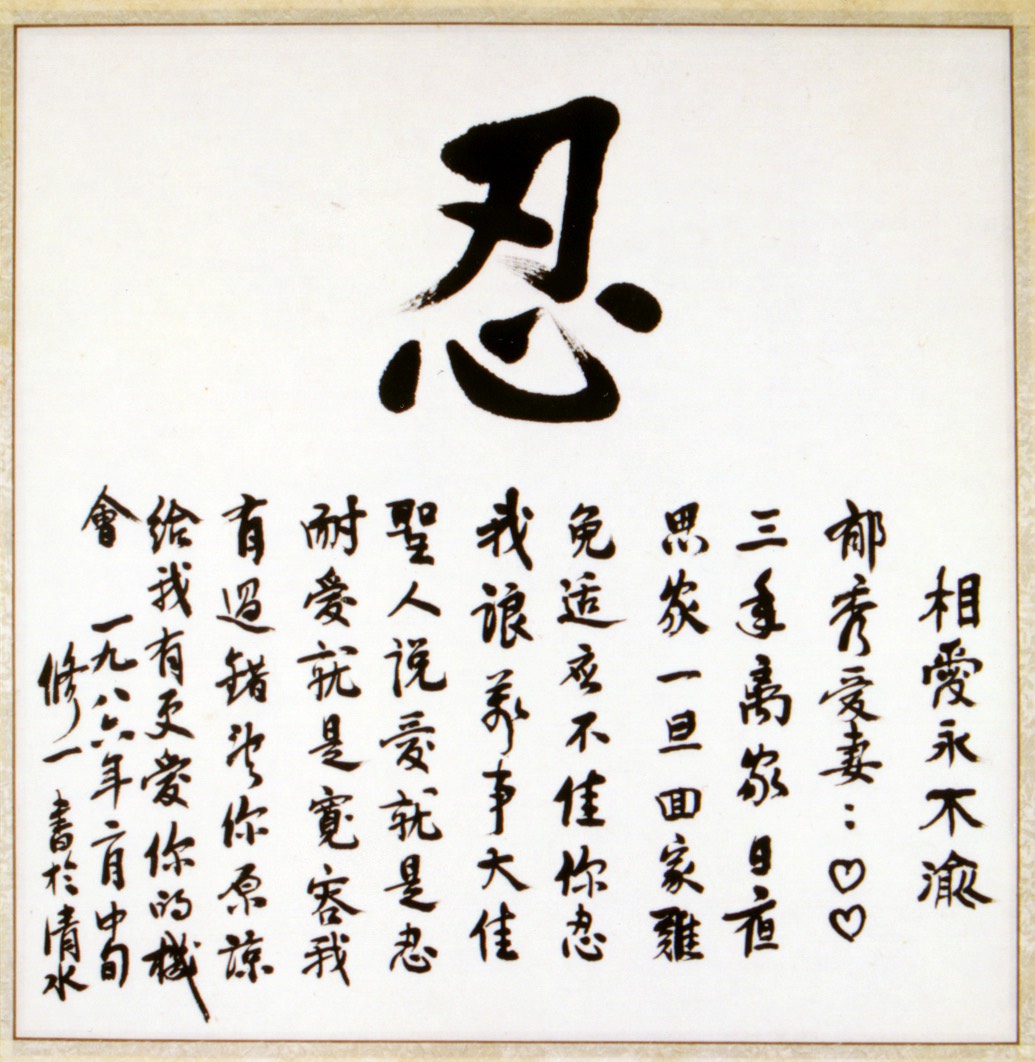 忍
相愛永不渝
郁秀爱妻：♡♡
三年离家日夜
思家一旦回家難
免适应不佳你忍
我 萬事大佳
聖人说爱就是忍
耐爱就是寬容我
有過錯望你原諒
給我有更爱你的機
會 一九八六年二月中旬
修一 書於清水